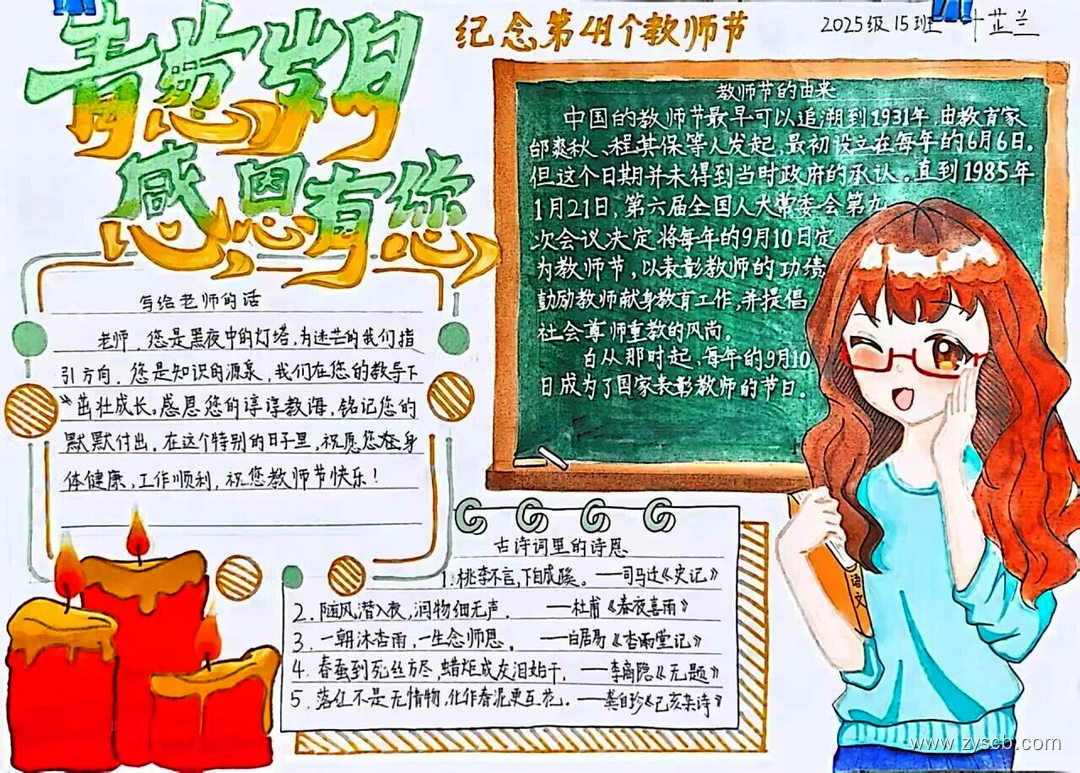 青葱岁月
感恩有您
纪念第41个教师节
2025级15班 叶芷兰
教师节的由来
中国的教师节最早可以追溯到1931年,由教育家
邰爽秋、程其保等人发起,最初设立在每年的6月6日。
但这个日期并未得到当时政府的承认。直到1985年
1月21日,第六届全国人大常委会第九
次会议决定将每年的9月10日定
为教师节,以表彰教师的功绩
鼓励教师献身教育工作,并提倡
社会尊师重教的风尚。
自从那时起,每年的9月10
日成为了国家表彰教师的节日。
写给老师的话
老师,您是黑夜中的灯塔,为迷茫的我们指
引方向。您是知识的源泉,我们在您的教导下
茁壮成长。感恩您的谆谆教诲,铭记您的
默默付出。在这个特别的日子里,祝愿您在身
体健康,工作顺利,祝您教师节快乐!
古诗词里的诗恩
1.桃李不言,下自成蹊。——司马迁《史记》
2.随风潜入夜,润物细无声。——杜甫《春夜喜雨》
3.一朝沐杏雨,一生念师恩。——白居易《杏雨堂记》
4.春蚕到死丝方尽,蜡炬成灰泪始干。——李商隐《无题》
5.落红不是无情物,化作春泥更互花。——龚自珍《己亥杂诗》
语文
www.zyscb.com